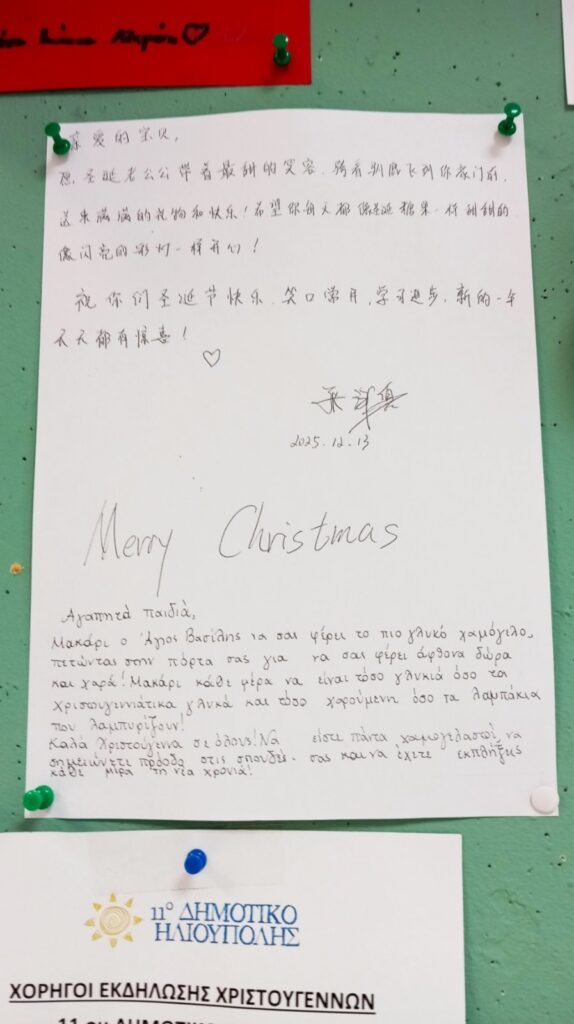 亲爱的宝贝,
愿圣诞老公公带着最甜的笑容,骑着驯鹿飞到你家门前,
送来满满的礼物和快乐!希望你每天都像圣诞糖果一样甜甜的
像闪亮的彩灯一样开心!
祝你们圣诞节快乐,笑口常开,学习进步,新的一年
天天都有惊喜!
2025.12.13
Merry Christmas
Αγαπητά παιδιά,
Μακάρι ο Άγιος Βασίλης να σας φέρει το πιο γλυκό χαμόγελο,
πετώντας στην πόρτα σας για να σας φέρει άφθονα δώρα
και χαρά! Μακάρι κάθε μέρα να είναι τόσο γλυκιά όσο τα
Χριστουγεννιάτικα γλυκά και τόσο χαρούμενη όσο τα λαμπάκια
που λαμπυρίζουν!
Καλά Χριστούγεννα σε όλους! Να είστε πάντα χαμογελαστοί, να
σημειώνετε πρόοδο στις σπουδές σας και να έχετε εκπλήξεις
κάθε μέρα τη νέα χρονιά!
11º ΔΗΜΟΤΙΚΟ
ΗΛΙΟΥΠΟΛΗΣ
ΧΟΡΗΓΟΙ ΕΚΔΗΛΩΣΗΣ ΧΡΙΣΤΟΥΓΕΝΝΩΝ